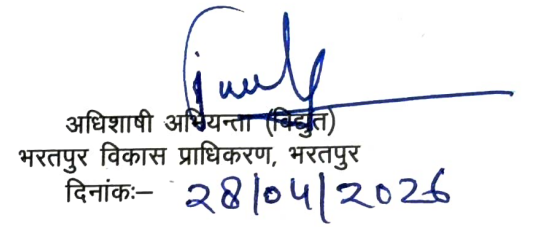 अधिशाषी अभियन्ता (विद्युत)
भरतपुर विकास प्राधिकरण, भरतपुर
दिनांकः– 28/04/2026